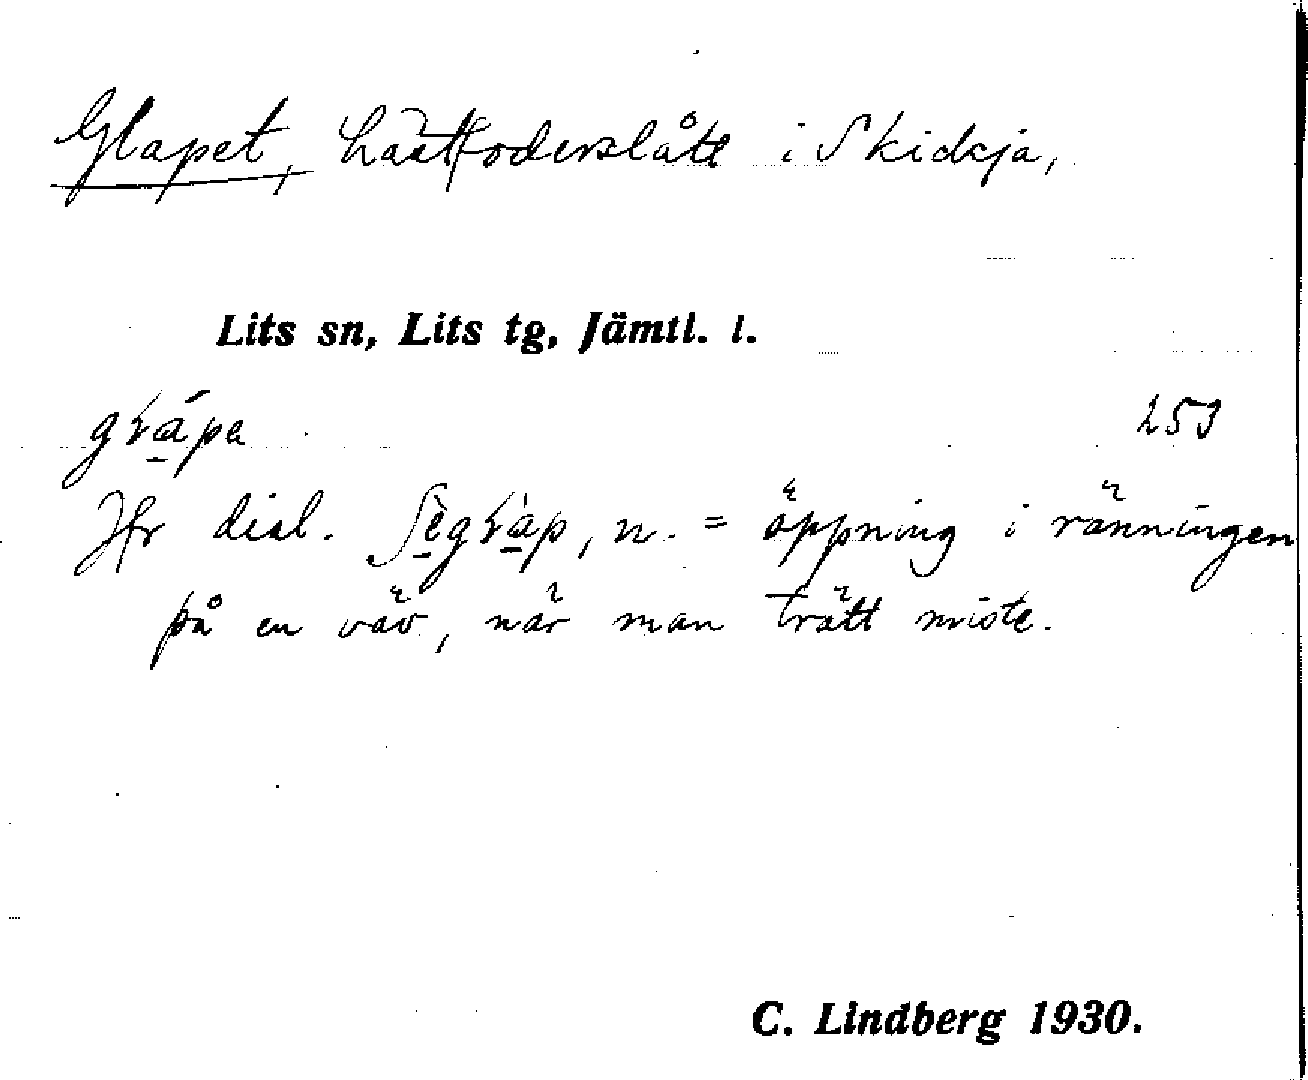 Glapet, hästfoderslått i Skickja,
Lits sn, Lits tg, Jämtl. l.
253
Jfr dial. n. = öppning i ränningen
på en väv, när man trätt miste.
C. Lindberg 1930.